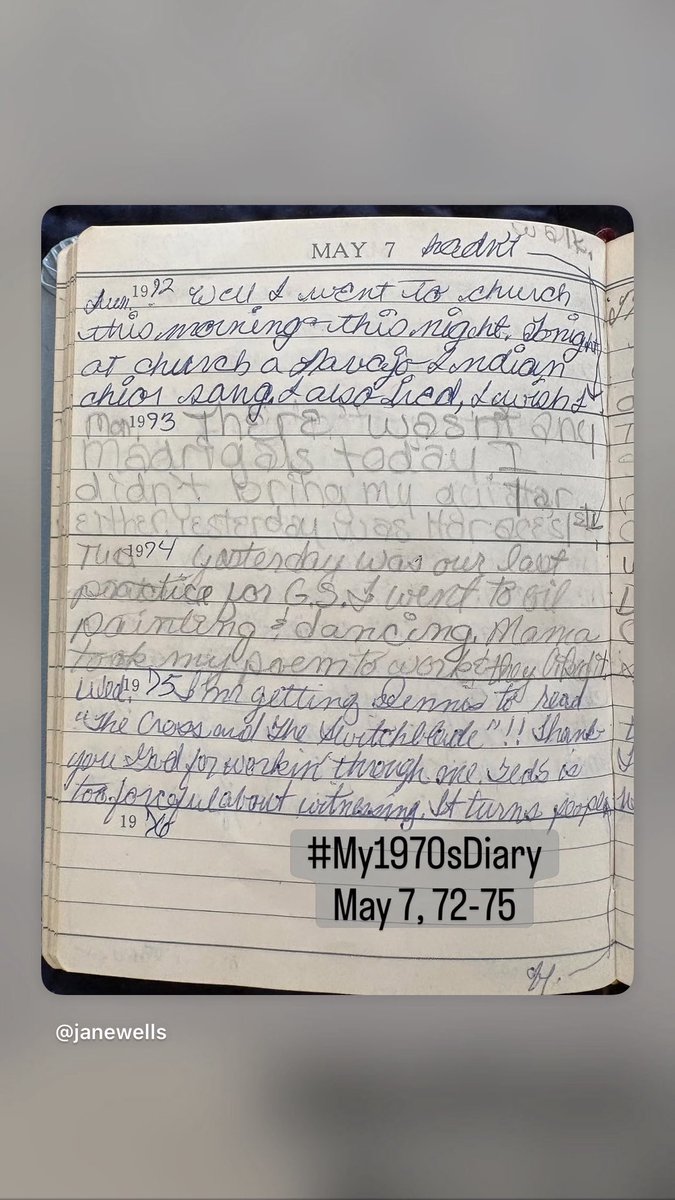 MAY 7 hadn't
walk,
Sun. 1972 Well I went to church
this morning & this night. Tonight
at church a Navajo Indian
chior sang, I also lied, I wish I
Mon. 1973 There wasn't any
Madrigals today I
didn't bring my guitar
either yesterday
Tue 1974 yesterday was our last
practice for G.S. I went to oil
painting & dancing. Mama
took my poem to work & they liked it
Wed. 19 75 I'm getting Dennis to read
"The Cross and The Switchblade"!! Thank
you God for workin' through me. Teds is
too forceful about witnessing. It turns people
19 76
#My1970sDiary
May 7, 72-75
off.
@janewells